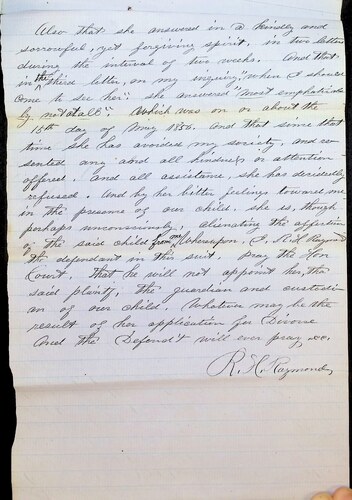 Also that she answered in a kindly and
sorrowful, yet forgiving spirit, in two letters
during the interval of two weeks. And that
in the third letter, on my inquiry "when I should
come to see her": she answered "most emphaticly
by not at all": Which was on or about the
15th day of May 1886. And that since that
time she has avoided my society, and re-
sented any and all kindness or attention
offered. And all assistance, she has decidedly
refused. And by her bitter feelings toward me
in the presence of our child. she is, though
perhaps unconsciously, alienating the affection
of the said child from me. Wherefore, I, R. H. Raymond
the defendant in this suit. pray the Hon
Court, that he will not appoint her, the
said plaintf, the guardian and custodi-
an of our child. Whatever may be the
result of her application for Divorce
And the Defend't will ever pray, &c.
R. H. Raymond,